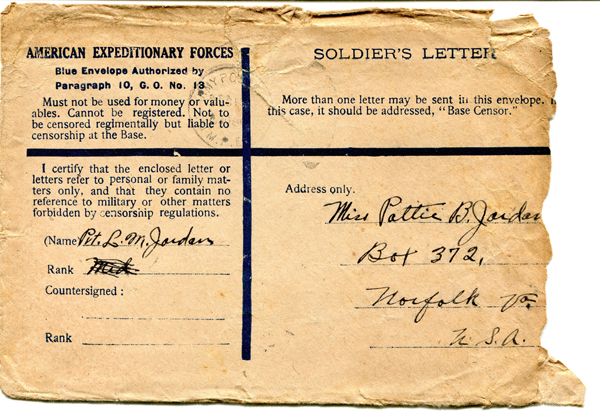 AMERICAN EXPEDITIONARY FORCES
Blue Envelope Authorized by
Paragraph 10, G. O. No. 13
Must not be used for money or valu-
ables. Cannot be registered. Not to
be censored regimentally but liable to
censorship at the Base.
I certify that the enclosed letter or
letters refer to personal or family mat-
ters only, and that they contain no
reference to military or other matters
forbidden by censorship regulations.
(Name Pvt. L. M. Jordan
Rank
Countersigned :
Rank
SOLDIER'S LETTER
More than one letter may be sent in this envelope.
this case, it should be addressed, "Base Censor."
Address only.
Miss Pattie B. Jordan
Box 372,
Norfolk Va.
U.S.A.